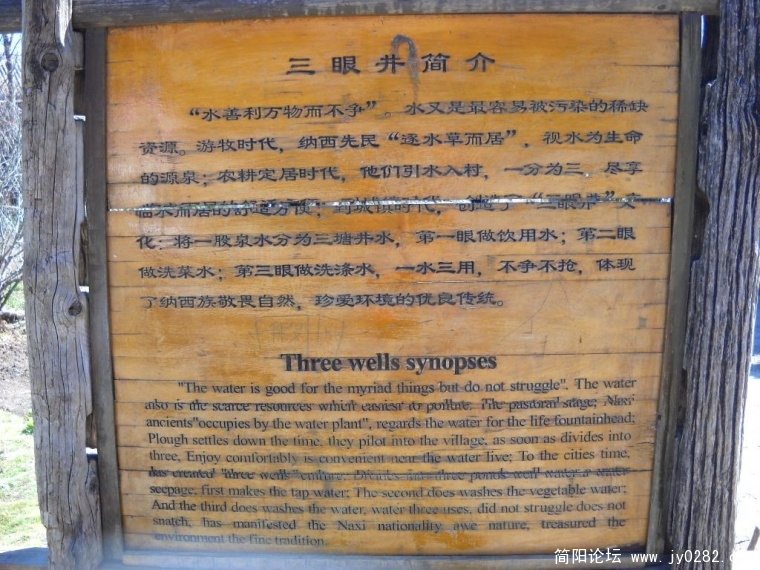 三眼井简介
“水善利万物而不争”。水又是最容易被污染的稀缺
资源。游牧时代，纳西先民“逐水草而居”，视水为生命
的源泉；农耕定居时代，他们引水入村，一分为三，尽享
临水而居的舒适方便；到城镇时代，创造了“三眼井”文
化：将一股泉水分为三塘井水，第一眼做饮用水；第二眼
做洗菜水；第三眼做洗涤水，一水三用，不争不抢，体现
了纳西族敬畏自然，珍爱环境的优良传统。
Three wells synopses
"The water is good for the myriad things but do not struggle". The water
also is the scarce resources which easiest to pollute. The pastoral stage; Naxi
ancients"occupies by the water plant", regards the water for the life fountainhead;
Plough settles down the time, they pilot into the village, as soon as divides into
three, Enjoy comfortably is convenient near the water live; To the cities time,
has created "three wells "culture: Divides into three ponds well water a water
seepage, first makes the tap water; The second does washes the vegetable water;
And the third does washes the water, water three uses, did not struggle does not
snatch, has manifested the Naxi nationality awe nature, treasured the
environment the fine tradition.
简阳论坛 www.jy0282.c